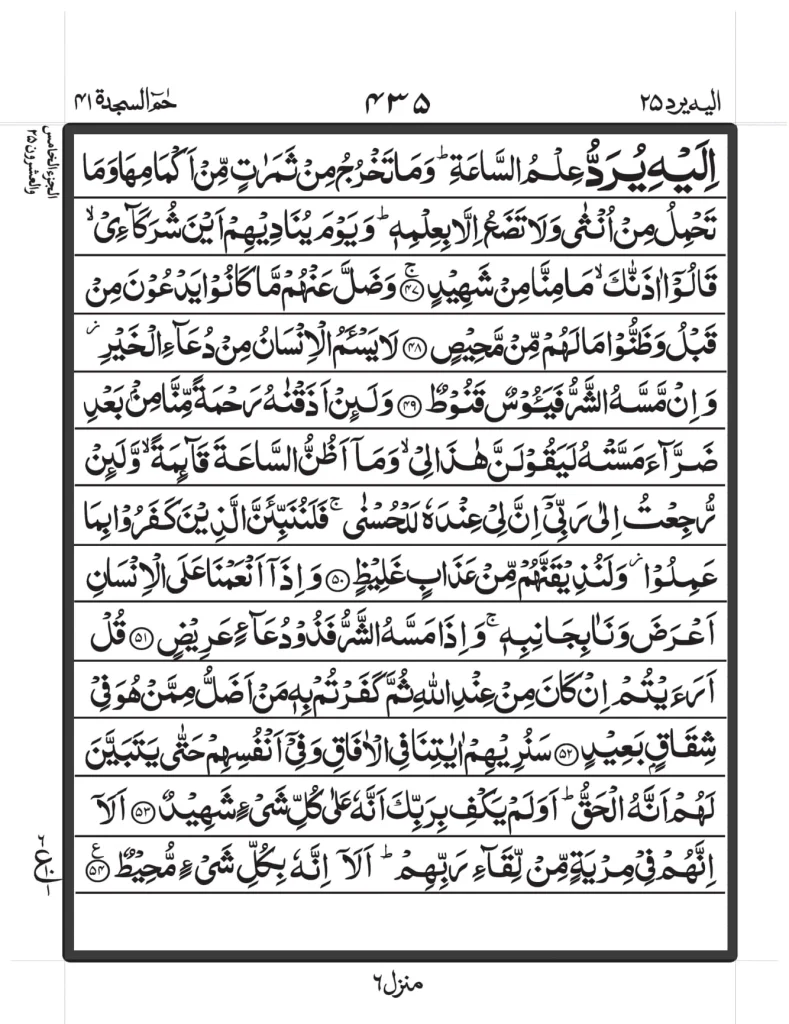 الیه یرد ۲۵
۴۳۵
حٰمٓ السجدة ۴۱
الجزء الخامس
والعشرون ۲۵
اِلَیْهِ یُرَدُّ عِلْمُ السَّاعَةِ ؕ وَمَا تَخْرُجُ مِنْ ثَمَرٰتٍ مِّنْ اَكْمَامِهَا وَمَا
تَحْمِلُ مِنْ اُنْثٰى وَلَا تَضَعُ اِلَّا بِعِلْمِهٖ ؕ وَیَوْمَ یُنَادِیْهِمْ اَیْنَ شُرَكَآءِیْ ۙ
قَالُوْۤا اٰذَنّٰكَ ۙ مَا مِنَّا مِنْ شَهِیْدٍ ۚ ﴿۴۷﴾ وَضَلَّ عَنْهُمْ مَّا كَانُوْا یَدْعُوْنَ مِنْ
قَبْلُ وَظَنُّوْا مَا لَهُمْ مِّنْ مَّحِیْصٍ ﴿۴۸﴾ لَا یَسْـَٔمُ الْاِنْسَانُ مِنْ دُعَآءِ الْخَیْرِ ؗ
وَاِنْ مَّسَّهُ الشَّرُّ فَیَـُٔوْسٌ قَنُوْطٌ ﴿۴۹﴾ وَلَىِٕنْ اَذَقْنٰهُ رَحْمَةً مِّنَّا مِنْۢ بَعْدِ
ضَرَّآءَ مَسَّتْهُ لَیَقُوْلَنَّ هٰذَا لِیْ ۙ وَمَاۤ اَظُنُّ السَّاعَةَ قَآىِٕمَةً ۙ وَّلَىِٕنْ
رُّجِعْتُ اِلٰى رَبِّیْۤ اِنَّ لِیْ عِنْدَهٗ لَلْحُسْنٰى ۚ فَلَنُنَبِّئَنَّ الَّذِیْنَ كَفَرُوْا بِمَا
عَمِلُوْا ؗ وَلَنُذِیْقَنَّهُمْ مِّنْ عَذَابٍ غَلِیْظٍ ﴿۵۰﴾ وَاِذَاۤ اَنْعَمْنَا عَلَى الْاِنْسَانِ
اَعْرَضَ وَنَاٰ بِجَانِبِهٖ ۚ وَاِذَا مَسَّهُ الشَّرُّ فَذُوْ دُعَآءٍ عَرِیْضٍ ﴿۵۱﴾ قُلْ
اَرَءَیْتُمْ اِنْ كَانَ مِنْ عِنْدِ اللّٰهِ ثُمَّ كَفَرْتُمْ بِهٖ مَنْ اَضَلُّ مِمَّنْ هُوَ فِیْ
شِقَاقٍۭ بَعِیْدٍ ﴿۵۲﴾ سَنُرِیْهِمْ اٰیٰتِنَا فِی الْاٰفَاقِ وَفِیْۤ اَنْفُسِهِمْ حَتّٰى یَتَبَیَّنَ
لَهُمْ اَنَّهُ الْحَقُّ ؕ اَوَلَمْ یَكْفِ بِرَبِّكَ اَنَّهٗ عَلٰى كُلِّ شَیْءٍ شَهِیْدٌ ﴿۵۳﴾ اَلَاۤ
اِنَّهُمْ فِیْ مِرْیَةٍ مِّنْ لِّقَآءِ رَبِّهِمْ ؕ اَلَاۤ اِنَّهٗ بِكُلِّ شَیْءٍ مُّحِیْطٌ ﴿۵۴﴾ ع
منزل ۶